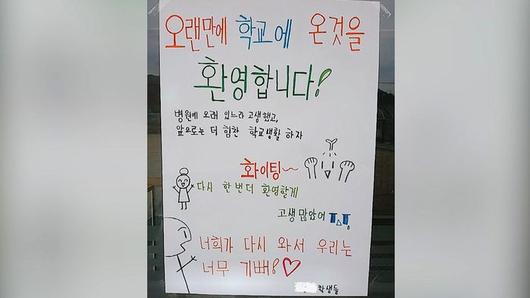 오랜만에 학교에 온것을
환영합니다!
병원에 오래 있느라 고생했고,
앞으로는 더 힘찬 학교생활 하자
화이팅~
다시 한번 더 환영할게
고생 많았어 ㅠㅅㅠ
너희가 다시 와서 우리는
너무 기뻐! ♡
학생들